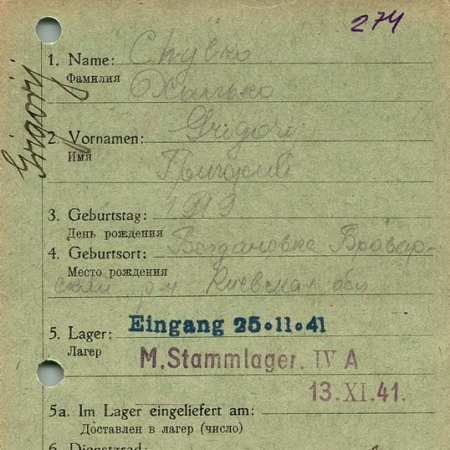 274
1. Name:
Фамилия
Grigorij
2. Vornamen: Grigori
Имя
Григорий
3. Geburtstag: 1919
День рождения
4. Geburtsort: Богдановка Бровар-
Место рождения
ский р-н Киевская обл
5. Lager: Eingang 25.11.41
Лагер
M.Stammlager. IV A
13.XI.41.
5a. Im Lager eingeliefert am:
Доставлен в лагер (число)
6. Dienstgrad: